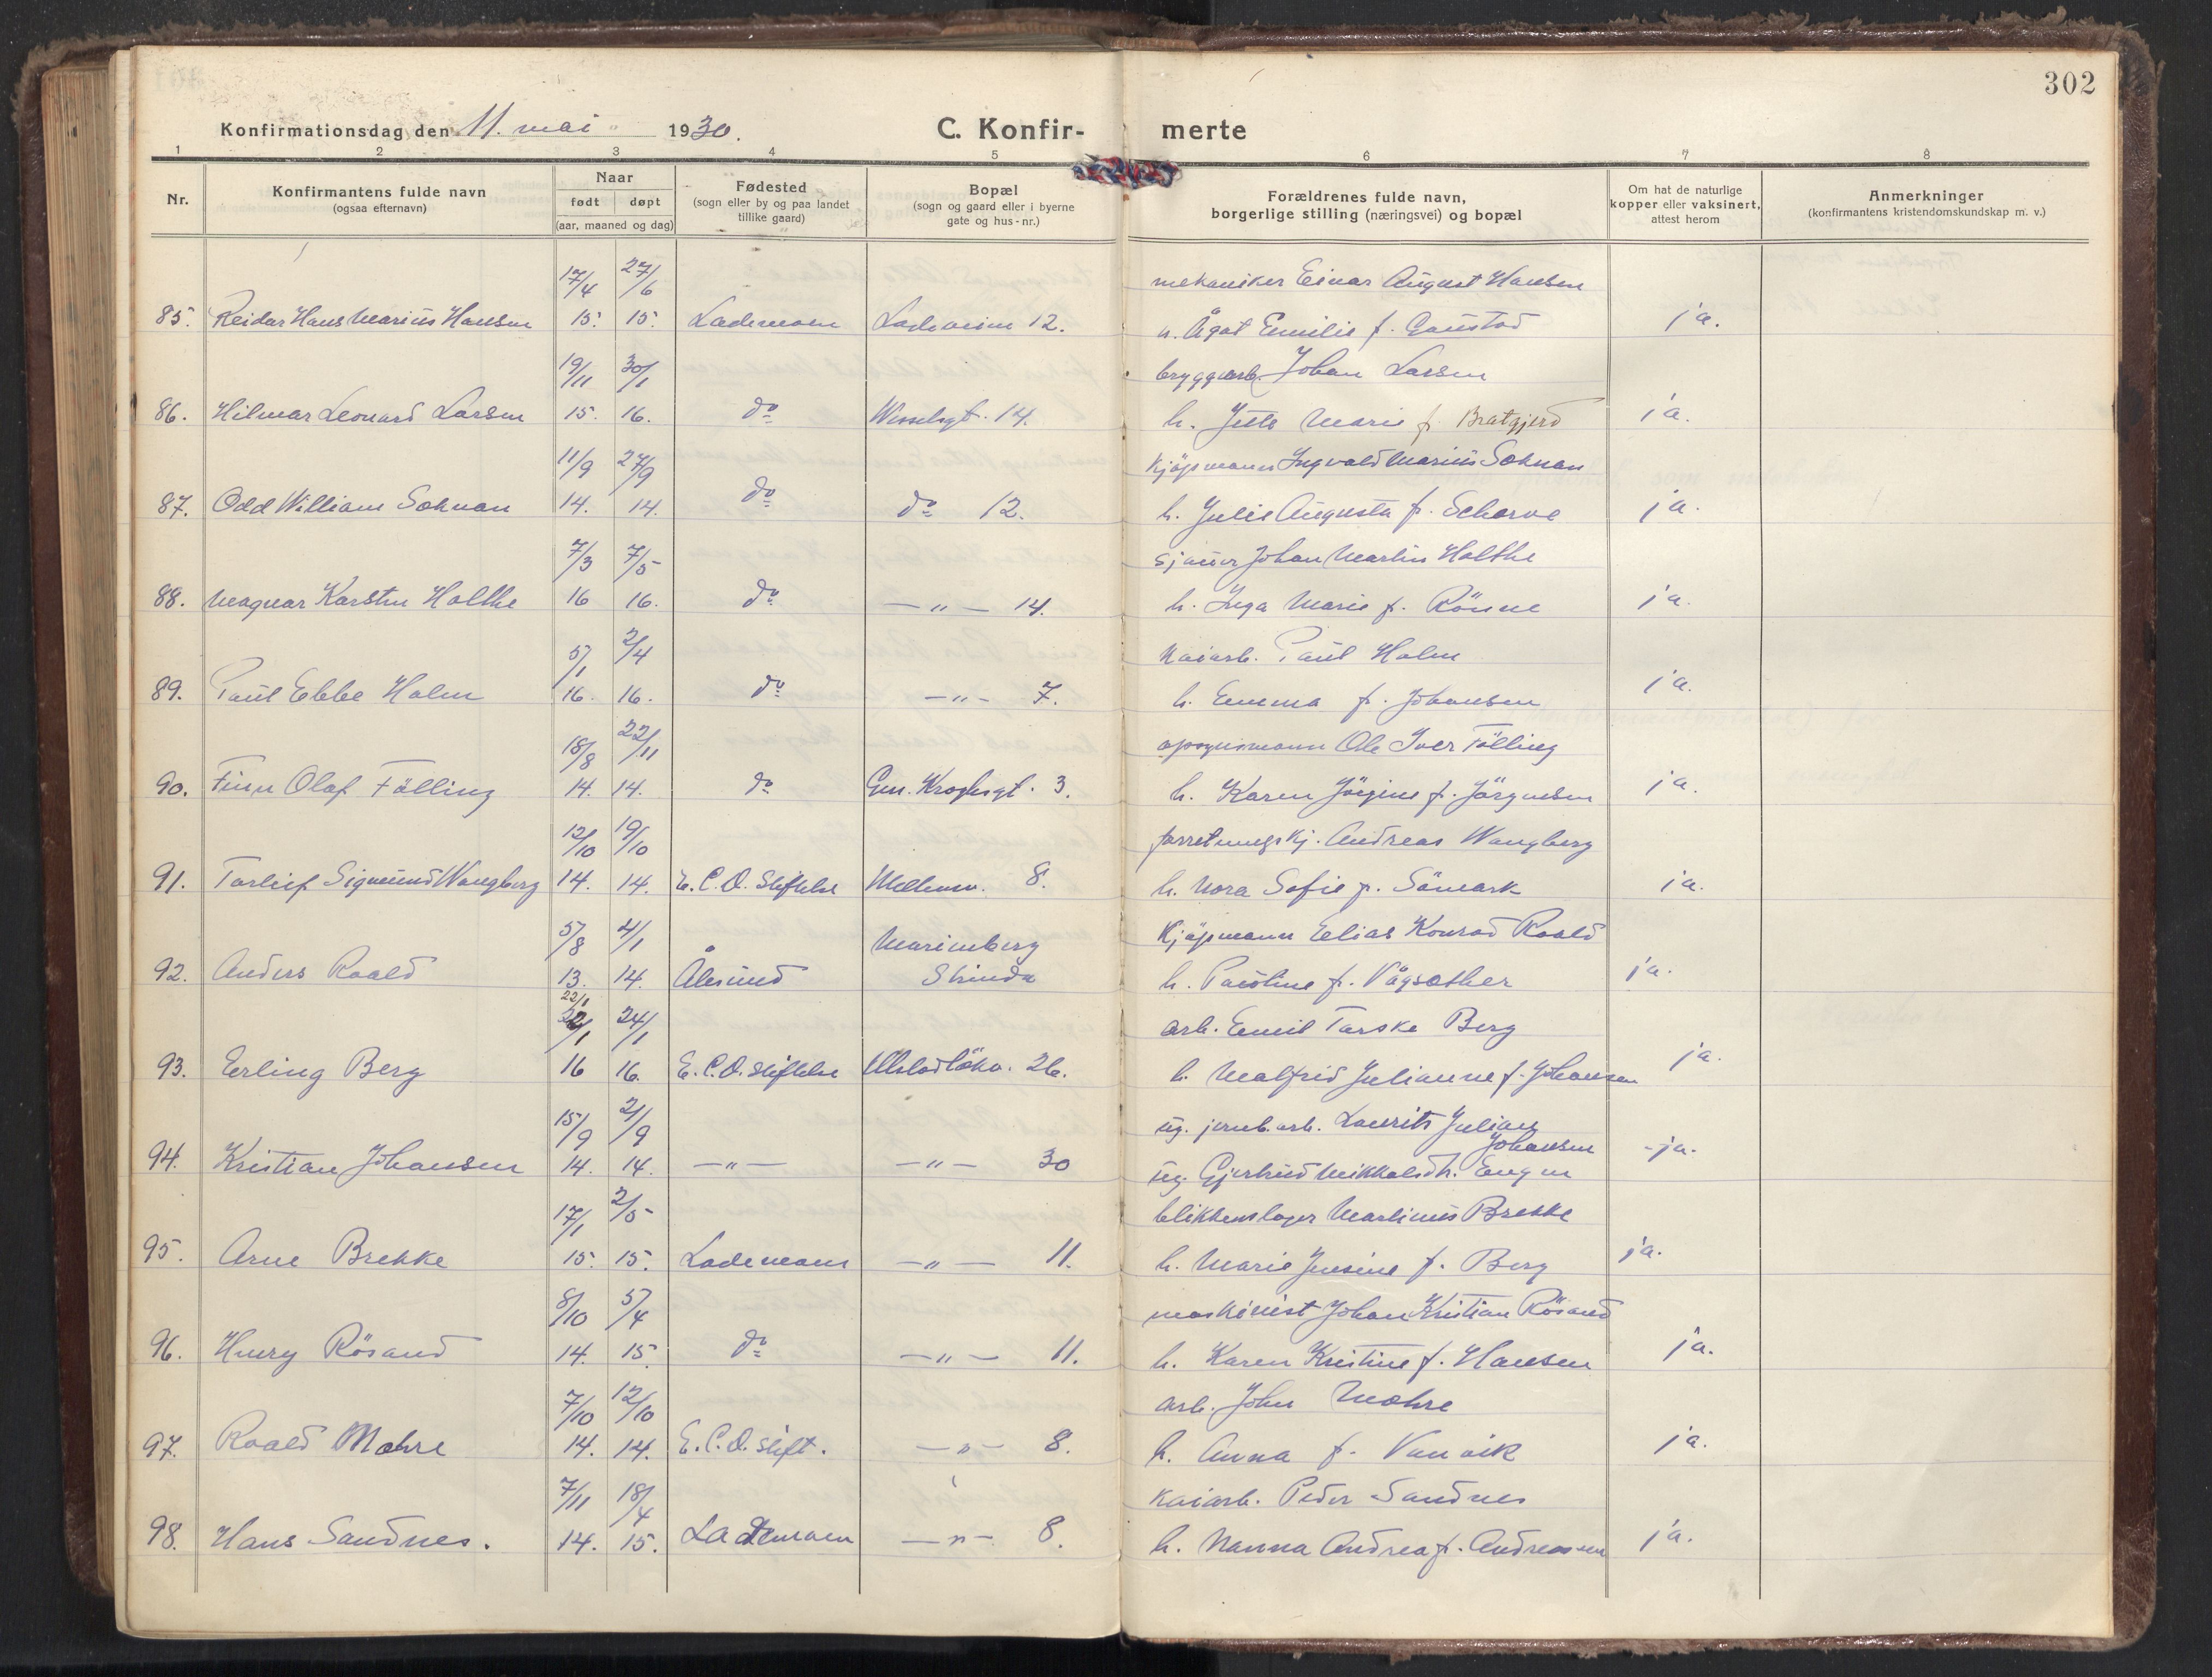 302
Konfirmationsdag den 11. mai 1930. C. Konfir- merte
1 2 3 4 5 6 7 8
Nr. Konfirmantens fulde navn (ogsaa efternavn) Naar født døpt (aar, maaned og dag) Fødested (sogn eller by og paa landet tillike gaard) Bopæl (sogn og gaard eller i byerne gate og hus-nr.) Forældrenes fulde navn, borgerlige stilling (næringsvei) og bopæl Om hat de naturlige kopper eller vaksinert, attest herom Anmerkninger (konfirmantens kristendomskundskap m. v.)
17/4 27/6 mekaniker Einar August Hansen
85. Reidar Hans Marius Hansen 15. 15. Lademoen Ladeveien 12. h. Ågot Emilie f. Gaustad ja.
19/11 30/1 bryggearb. Johan Larsen
86. Hilmar Leonard Larsen 15. 16. do Wesselsgt. 14. h. Jette Marie f. Bratgjerd ja.
11/9 27/9 Kjöpmann Ingvald Marius Soknan
87. Odd William Soknan 14. 14. do do 12. h. Julie Augusta f. Scharve ja.
7/3 7/5 sjauer Johan Martin Holthe
88. Magnar Karsten Holthe 16 16. do —"— 14. h. Inga Marie f. Rönne ja.
5/1 2/4 Kaiarb. Paul Holm
89. Paul Ebbe Holm 16. 16. do —"— 7. h. Emma f. Johansen ja.
18/8 22/11 opsynsmann Ole Iver Fölling
90. Finn Olaf Fölling 14. 14. do Gen. Kroghsgt. 3. h. Karen Jörgine f. Jörgensen ja.
12/10 19/10 forretningskj. Andreas Wangberg
91. Torleif Sigmund Wangberg 14. 14. E. C. D. Stiftelse Mellemv. 8. h. Nora Sofie f. Sömark ja.
5/8 4/1 Marienberg Kjöpmann Elias Konrad Roald
92. Anders Roald 13. 14. Ålesund Strinda h. Paoline f. Vågsæther ja.
22/1
22/1 24/1 arb. Emil Torske Berg
93. Erling Berg 16 16. E. C. D. Stiftelse Ulstadlökv. 26. h. Malfrid Julianne f. Johansen ja.
15/9 2/9 ug. jernb. arb. Laurits Julian Johansen
94. Kristian Johansen 14. 14. —"— —"— 30 ug. Gjertrud Mikkalsdtr. Engen -ja.
17/1 2/5 blikkenslager Martinus Brekke
95. Arne Brekke 15. 15. Lademoen —"— 11. h. Marie Jensine f. Berg ja.
8/10 5/4 maskinist Johan Kristian Rösand
96. Henry Rösand 14. 15. do —"— 11. h. Karen Kristine f. Hansen ja.
7/10 12/10 arb. John Mohre
97. Roald Mohre 14. 14. E. C. D. stift. —"— 8. h. Anna f. Vanvik ja.
7/11 18/4 Kaiarb. Peder Sandnes
98. Hans Sandnes. 14. 15. Lademoen —"— 8. h. Nanna Andrea f. Andreassen ja.